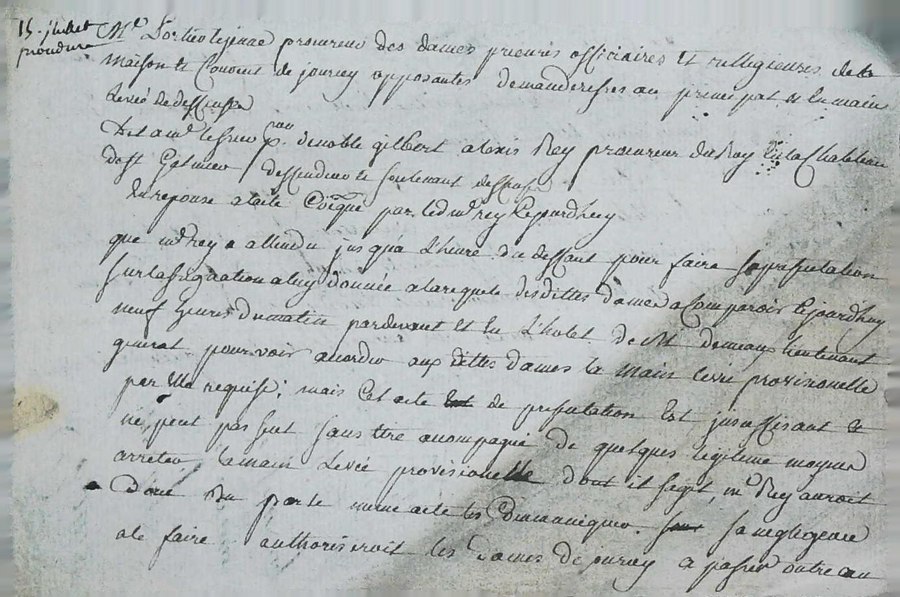 15. juillet
procedure
Me Portier lejeune procureur des dames prieure officiaires et relligieuses de la
Maison et Couvent de jourcy opposantes demanderesses au principal et en main
Levée de deffenses
Dit a me procureur de noble gilbert alexis Rey procureur du Roy en la Chatelenie
de st Galmier deffendeur et soutenant deffenses
En reponse a lacte Coïqué par led me rey Cejourdhuy
que me rey a attendu jusqua L'heure du deffaut pour faire sa presentation
sur lassignation a luy donnée a la requete desdittes dames a Comparoir Cejourdhuy
neuf heures du matin pardevant et En L'hotel de M. lieutenant
general pour voir accorder aux dittes dames la Main levée provisionelle
par Elle requise; mais Cet acte de presentation Est insuffisant et
ne peut pas seul sans etre acompagné de quelques legitime moyens
arreter la main Levée provisionelle dont il sagit, me Rey auroit
Donc Du par le meme acte les Communiquer. sa negligence
a le faire authoriseroit les Dames De jourcy a passer outre au